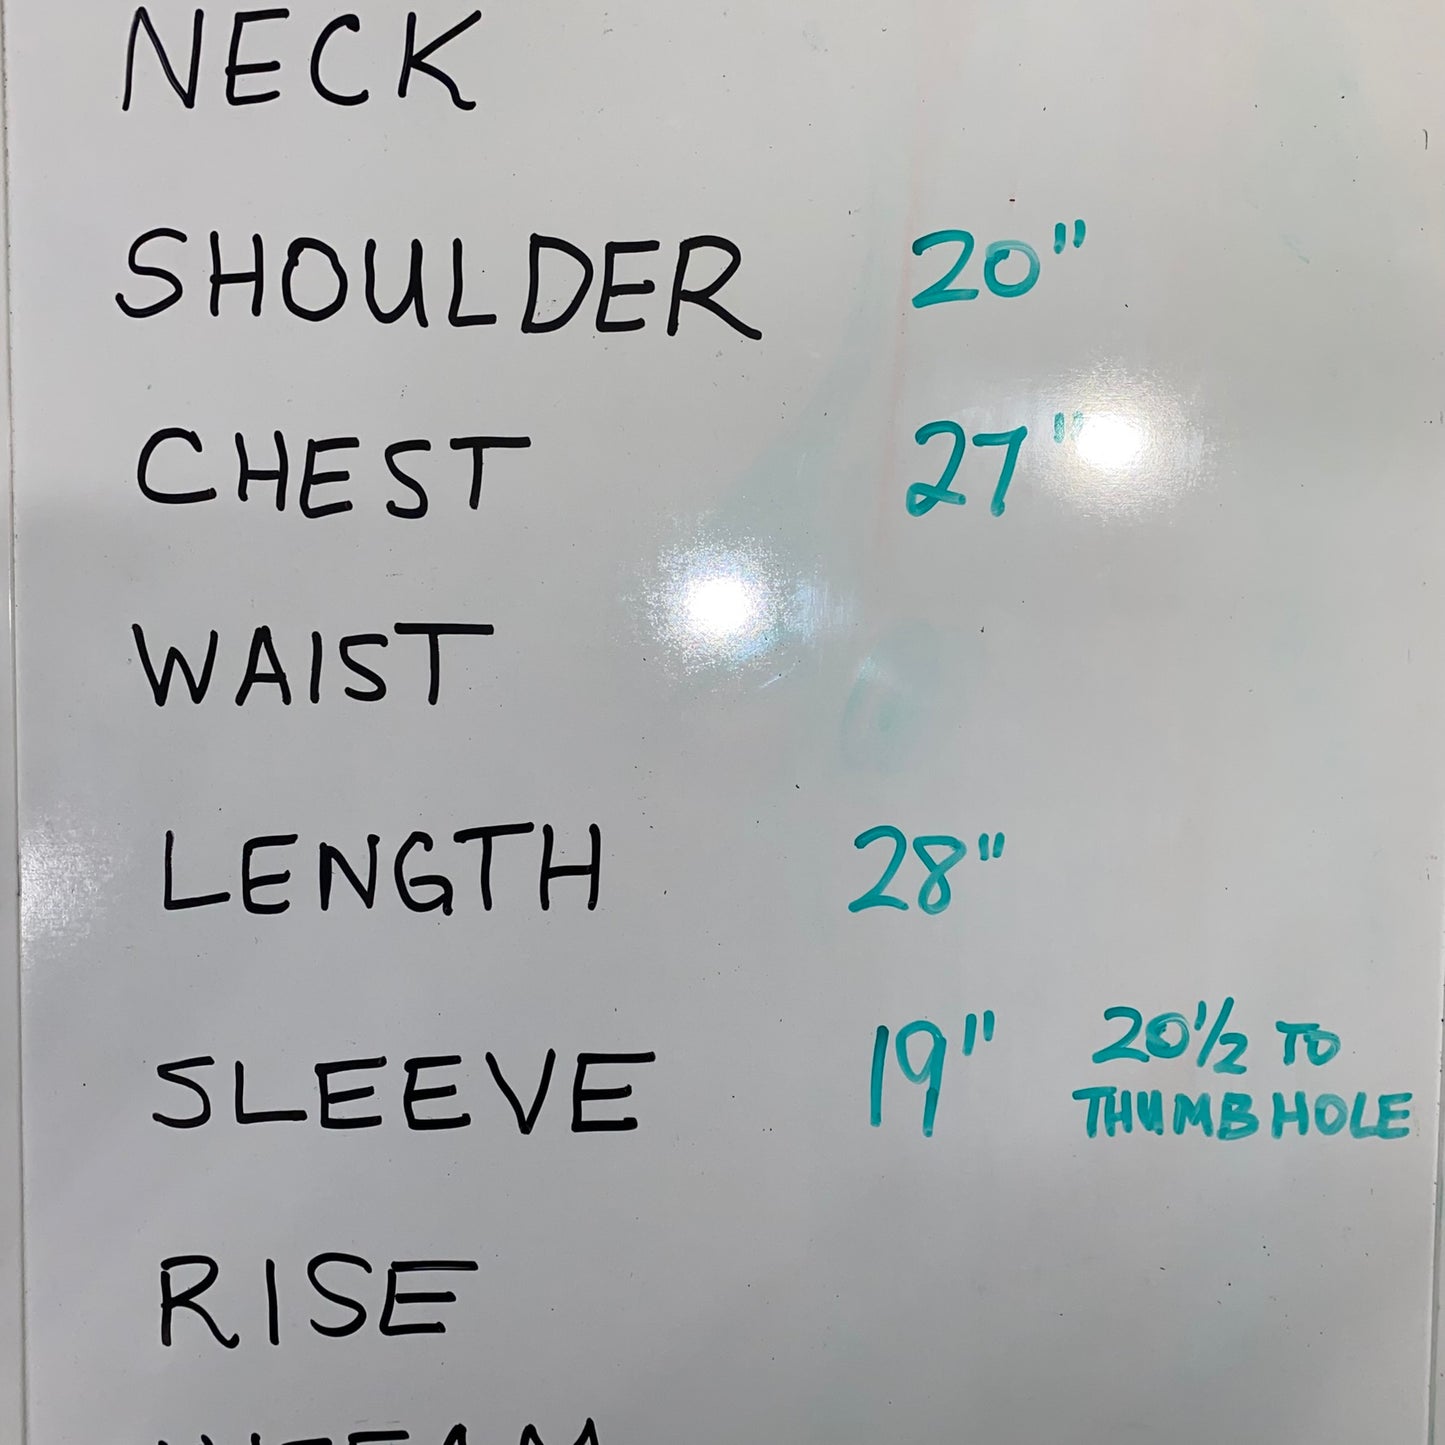 NECK
SHOULDER 20"
CHEST 27"
WAIST
LENGTH 28"
SLEEVE 19" 20 1/2 TO
THUMB HOLE
RISE